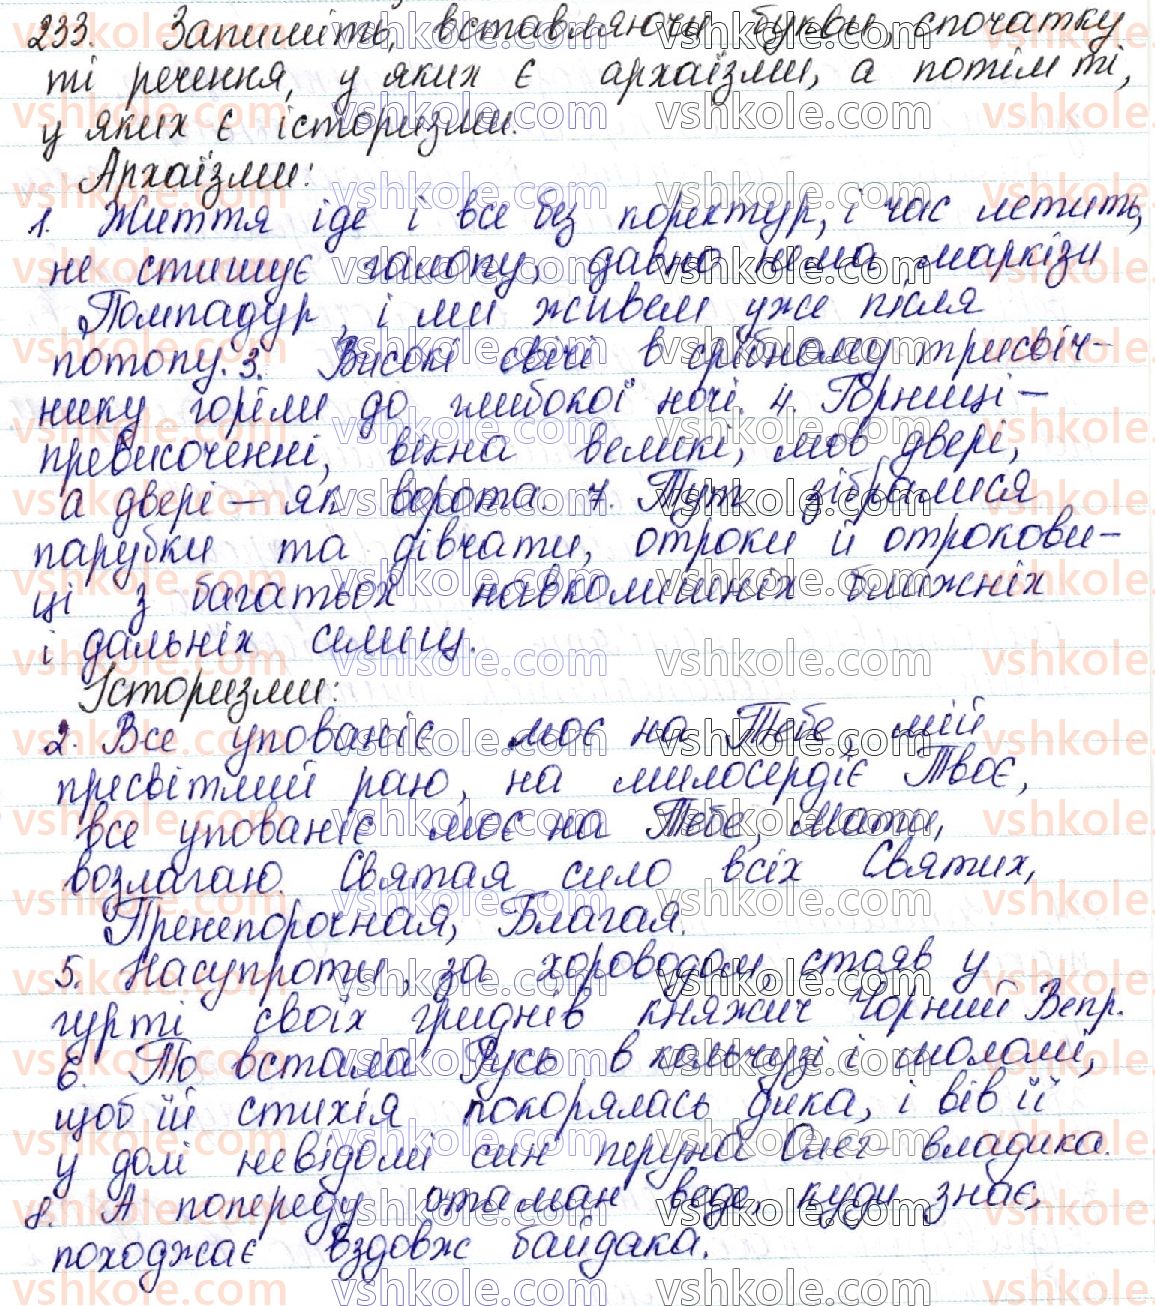 233. Запишіть, вставляючи букви, спочатку
ті речення, у яких є архаїзми, а потім ті,
у яких є історизми.
Архаїзми:
1. Життя іде і все без поректур, і час летить,
не стишує галопу, давно нема маркізи
Помпадур, і ми живем уже після
потопу. 3. Високі свічі в срібному трисвіч-
нику горіли до глибокої ночі. 4. Горниці –
превисоченні, вікна великі, мов двері,
а двері – як ворота. 7. Тут зібралися
парубки та дівчати, отроки й отрокови-
ці з багатьох навколишніх ближніх
і дальніх селищ.
Історизми:
2. Все упованіє моє на Тебе, мій
пресвітлий раю, на милосердіє Твоє,
все упованіє моє на Тебе, Мати,
возлагаю. Святая сило всіх Святих,
Пренепорочная, Благая.
5. Насупроти, за хороводом, стояв у
гурті своїх гриднів княжич Чорний Вепр.
6. То встала Русь в кольчузі і шоломі,
щоб їй стихія покорялась дика, і вів її
у долі невідомі син перуна Олег–владика.
8. А попереду отаман веде, куди знає,
походжає вздовж байдака.
vshkole.com